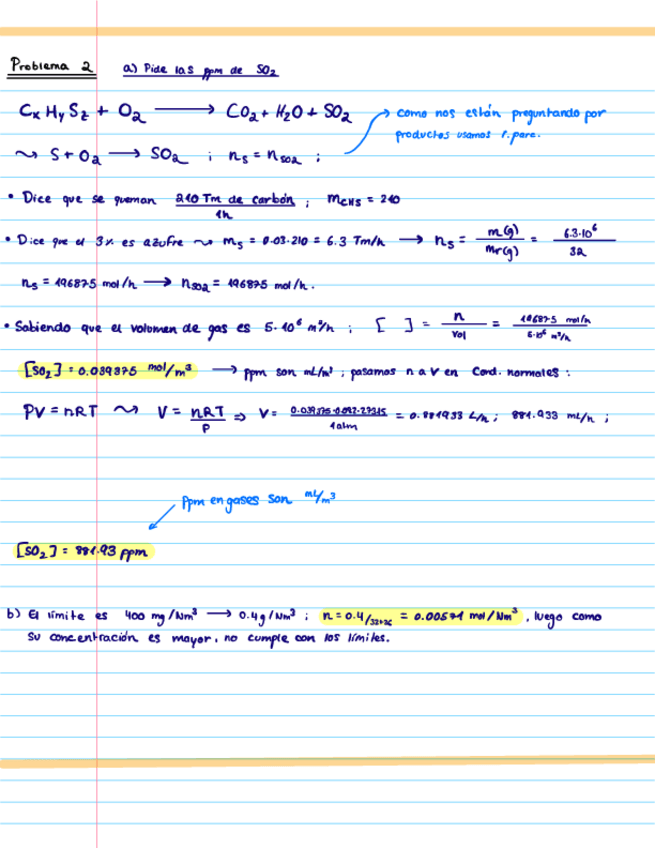 Problema 2 a) Pide las ppm de SO2
CxHySz + O2 ⟶ CO2 + H2O + SO2
como nos están preguntando por
productos usamos r. parc.
⤳ S + O2 ⟶ SO2 ; ns = nSO2 ;
• Dice que se queman 210 Tm de carbón / 1h ; mCHS = 210
• Dice que el 3% es azufre ⤳ ms = 0.03·210 = 6.3 Tm/h ⟶ ns = m(g) / Mr(g) = 6.3·10^6 / 32
ns = 196875 mol/h ⟶ nSO2 = 196875 mol/h.
• Sabiendo que el volumen de gas es 5·10^6 m³/h ; [ ] = n / Vol = 196875 mol/h / 5·10^6 m³/h
[SO2] = 0.039375 mol/m³ ⟶ ppm son mL/m³ ; pasamos n a V en Cond. normales :
PV = nRT ⤳ V = nRT / P ⇒ V = 0.039375·0.082·273.15 / 1 atm = 0.881933 L/h ; 881.933 mL/h ;
ppm en gases son mL/m³
[SO2] = 881.93 ppm
b) El límite es 400 mg/Nm³ ⟶ 0.4 g/Nm³ ; n = 0.4/32+36 = 0.00571 mol/Nm³, luego como
su concentración es mayor, no cumple con los límites.